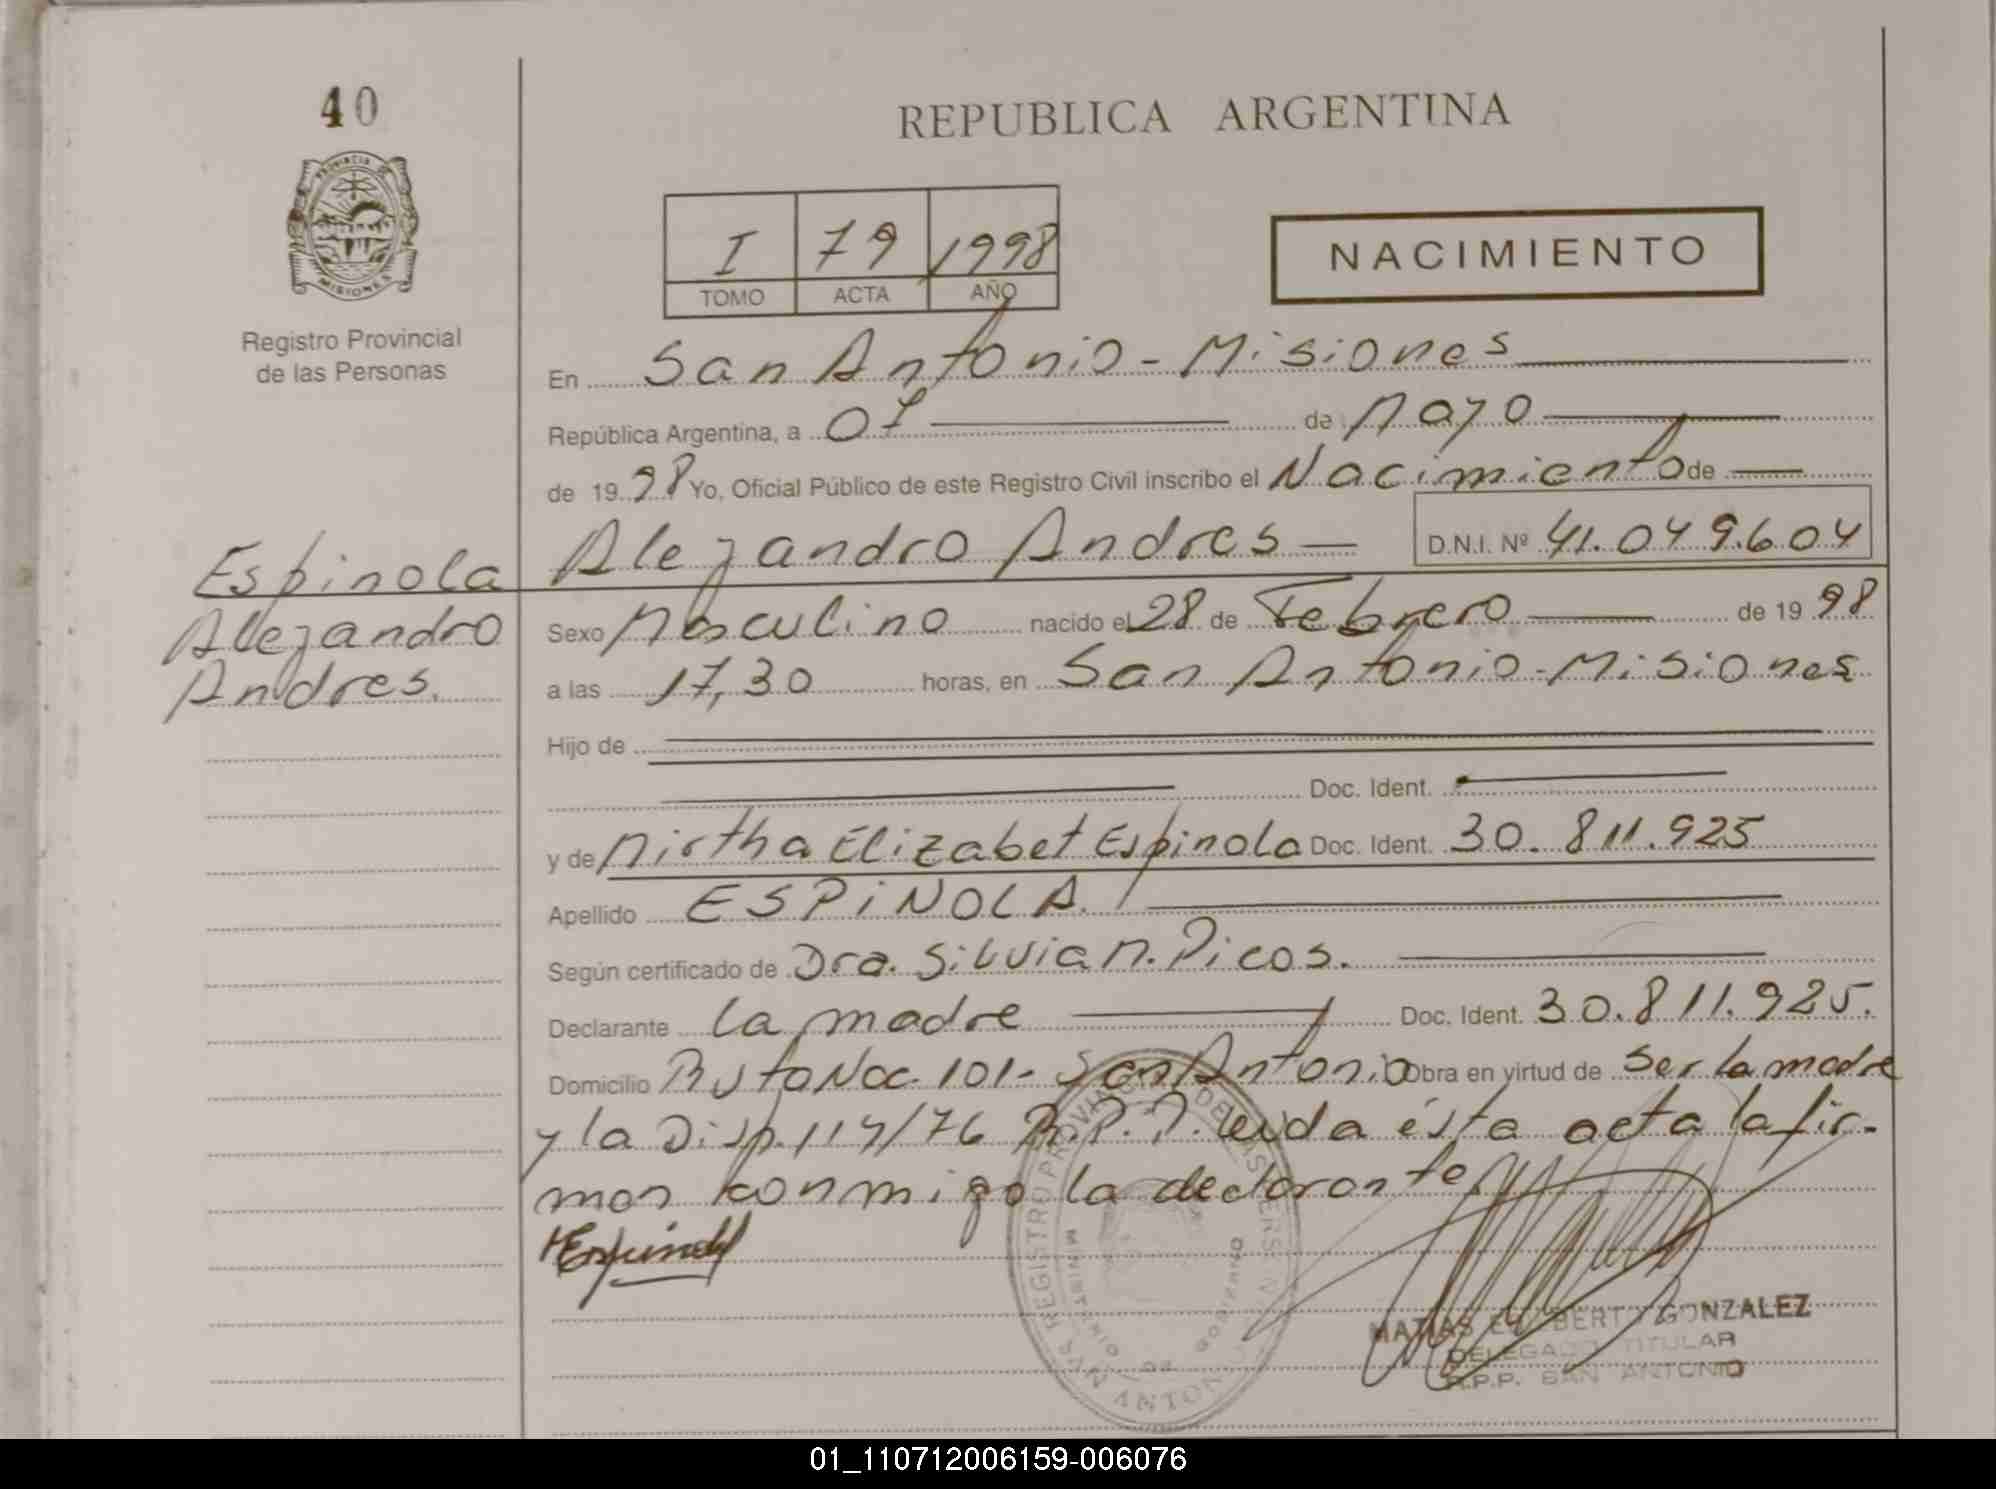 40
REPUBLICA ARGENTINA
PROVINCIA DE
MISIONES
Registro Provincial
de las Personas
I 79 1998
TOMO ACTA AÑO
NACIMIENTO
En San Antonio - Misiones
República Argentina, a 07 de Mayo
de 19 98 Yo, Oficial Público de este Registro Civil inscribo el Nacimiento de
Alejandro Andres D.N.I. Nº 41.049.604
Espinola
Alejandro
Andres.
Sexo Masculino nacido el 28 de Febrero de 19 98
a las 17,30 horas, en San Antonio - Misiones
Hijo de
Doc. Ident.
y de Mirtha Elizabet Espinola Doc. Ident. 30.811.925
Apellido ESPINOLA.
Según certificado de Dra. Silvia M. Picos.
Declarante La madre Doc. Ident. 30.811.925.
Domicilio Ruta Nac. 101 - San Antonio Obra en virtud de ser la madre
y la Disp. 114/76 R.P.P. Leida ésta acta la fir-
man conmigo la declarante
MATIAS GONZALEZ
DELEGADO TITULAR
R.P.P. SAN ANTONIO
REGISTRO PROVINCIAL DE LAS PERSONAS
MINISTERIO DE GOBIERNO
SAN ANTONIO
01_110712006159-006076